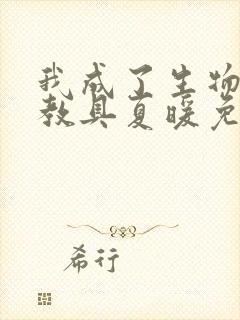 我成了生物
教具夏暖免
希行